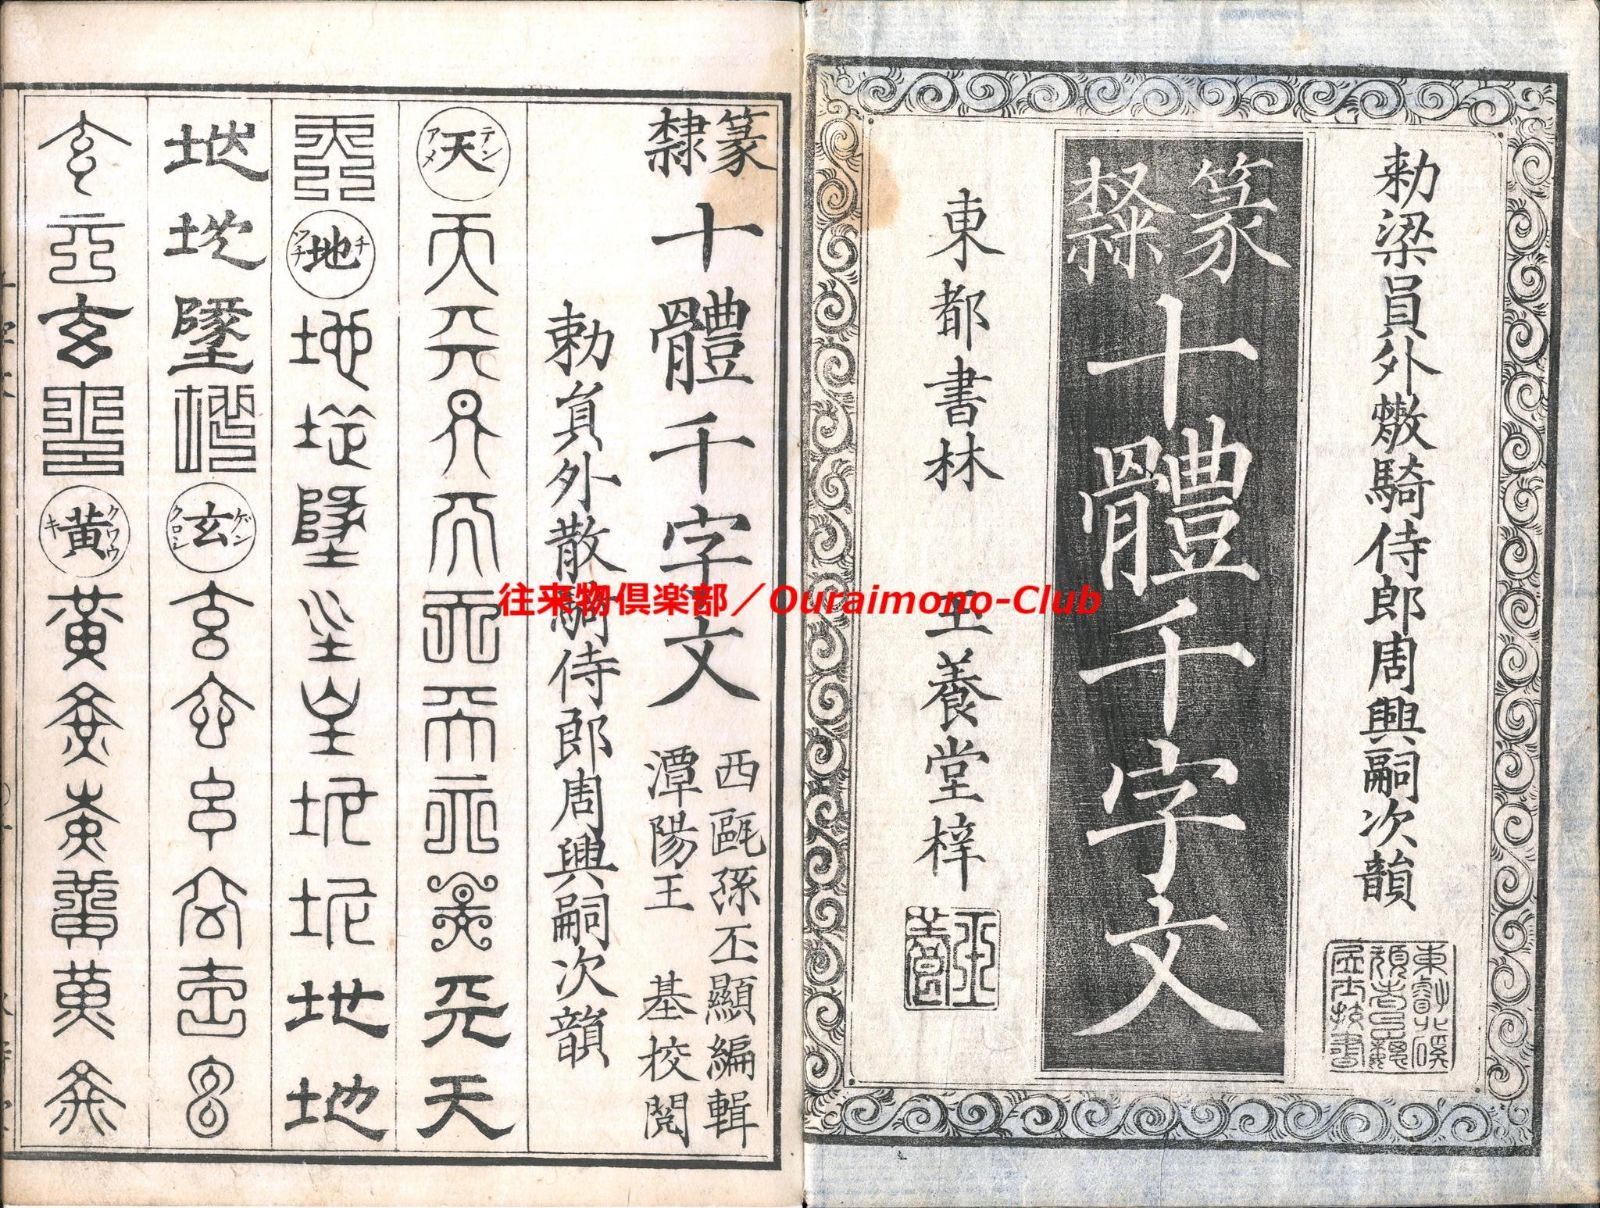 敕梁員外散騎侍郎周興嗣次韻
篆隸十體千字文
東都書林 玉養堂梓
玉養
篆隸十體千字文
西甌孫丕顯編輯
潭陽王 基校閱
勅員外散騎侍郎周興嗣次韻
天 テン アメ
天天天天天天天天天天
天 地 チ ツチ
地地地地地地地地
地地地地 玄 ゲン クロシ
玄玄玄玄玄玄
玄玄玄玄 黄 クワウ キ
黄黄黄黄黄黄
往来物倶楽部／Ouraimono-Club